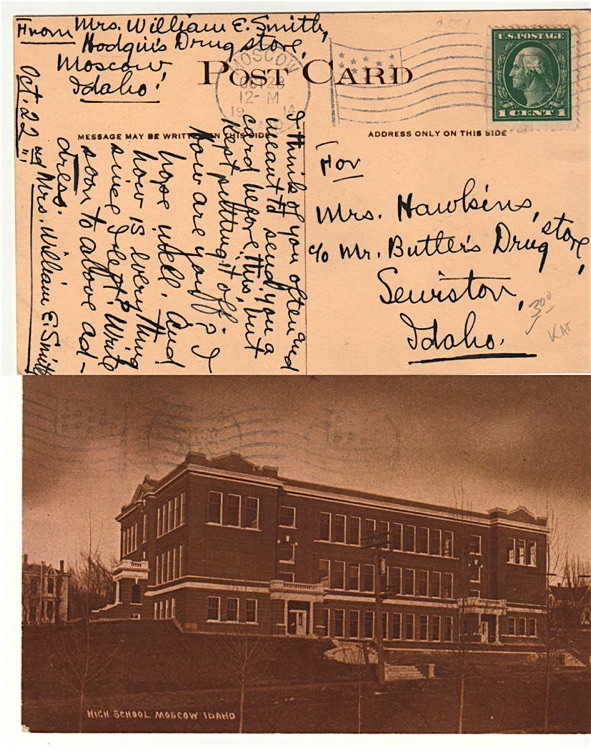 From Mrs. William E. Smith,
Hodgin's Drug store,
Moscow
Idaho!
POST CARD
MOSCOW
12-M
U.S. POSTAGE
1 CENT 1
MESSAGE MAY BE WRITTEN ON THIS SIDE
ADDRESS ONLY ON THIS SIDE
For
Mrs. Hawkins,
c/o Mr. Butler's Drug store,
Lewiston,
Idaho.
300
KAT
Oct. 22nd
I think of you often and
meant to send you a
card before this, but
kept putting it off.
How are you? I
hope well. And
how is everything
since I left? Write
soon to above ad-
dress.
Mrs. William E. Smith
HIGH SCHOOL MOSCOW IDAHO